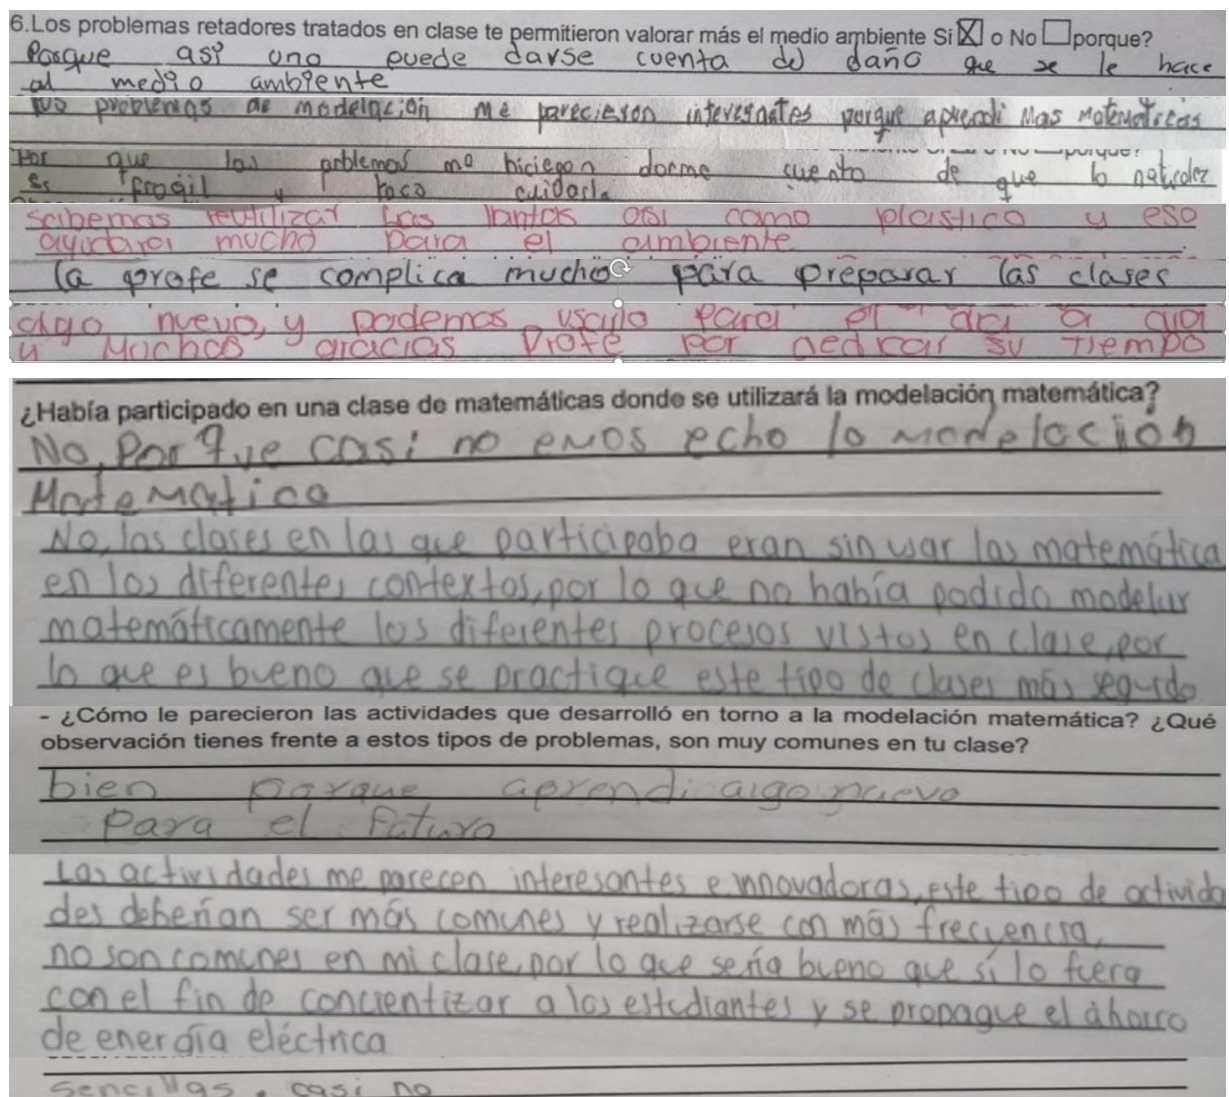 6.Los problemas retadores tratados en clase te permitieron valorar más el medio ambiente Si X o No porque?
Porque asi uno puede darse cuenta del daño que se le hace
al medio ambiente
los problemas de modelacion me parecieron interesnates porque aprendi Mas Matematicas
Por que los problemas me hicieron darme cuenta de que la naturalez
es fragil y toca cuidarla
porque?
sabemas reutilizar las llantas asi como plastico y eso
ayudara mucho para el ambiente
la profe se complica mucho para preparar las clases
algo nuevo, y podemos usarlo para el dia a dia
y Muchas gracias Profe por dedicar su tiempo
¿Había participado en una clase de matemáticas donde se utilizará la modelación matemática?
No, Por que casi no emos echo la modelacion
Matematica
No, las clases en las que participaba eran sin usar las matemática
en los diferentes contextos, por lo que no había podido modelar
matemáticamente los diferentes procesos vistos en clase, por
lo que es bueno que se practique este tipo de clases más seguido
- ¿Cómo le parecieron las actividades que desarrolló en torno a la modelación matemática? ¿Qué
observación tienes frente a estos tipos de problemas, son muy comunes en tu clase?
bien porque aprendi algo nuevo
Para el futuro
Las actividades me parecen interesantes e innovadoras, este tipo de activida
des deberían ser más comunes y realizarse con más frecuencia,
no son comunes en mi clase, por lo que sería bueno que sí lo fuera
con el fin de concientizar a los estudiantes y se propague el ahorro
de energía eléctrica
sencillas, casi no